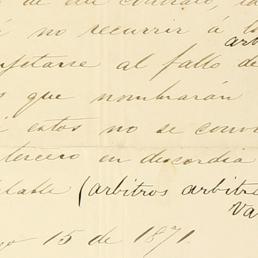 de un contrato, la
no recurrir á lo
arb
sujetarse al fallo de
s que nombrarán
i estos no se convi
tercero en discordia
elable (arbitros arbitre
Va
o 15 de 1871.